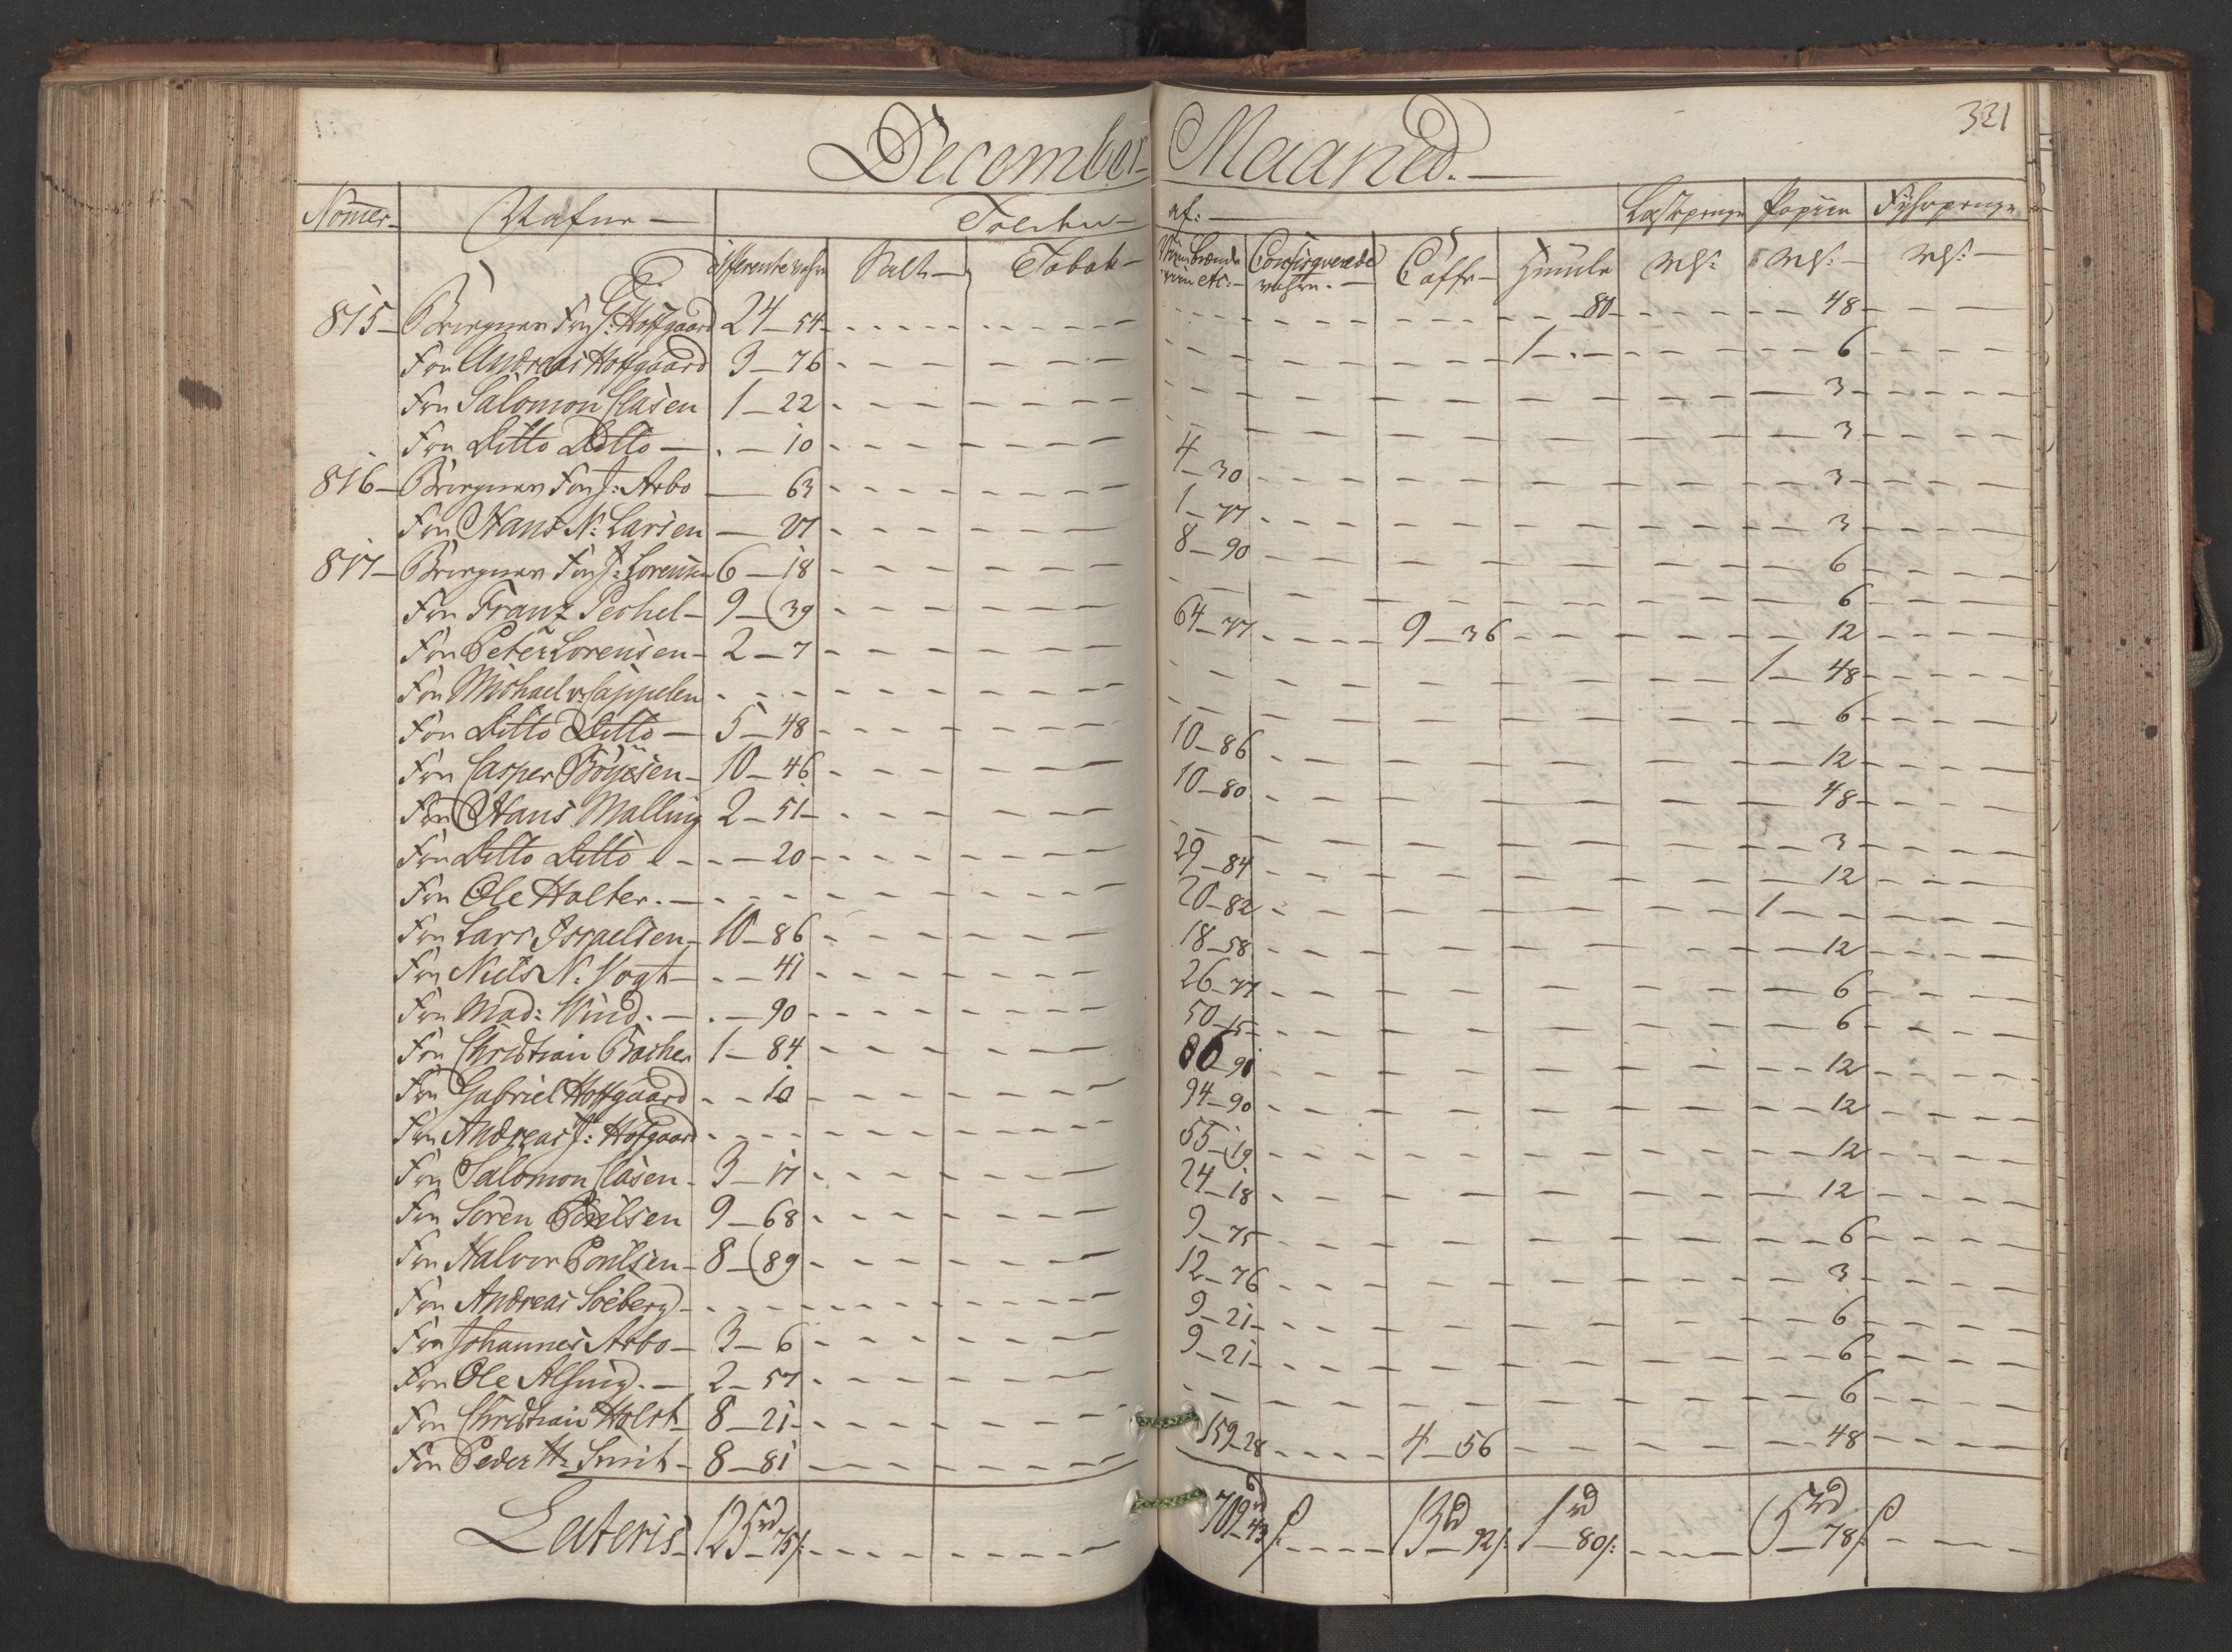 December Maaned. 321
Nomer Nafne Tolden af: Lastepenge Papiir Fyhrpenge
differente vahre Salt Tobak Viin Brænde viin etc: Confisqverede vahre. Caffe Humle rdh: rdh: rdh:
815 Borgmr: For J: Hoffgaard 24 54 80 48
For Andreas Hoffgaard 3 76 1 6
For Salomon Clasen 1 22 3
For Ditto Ditto 10 3
816 Borgmr: For J: Arbo 63 4 30 3
For Hans N: Larsen 1 77 3
817 Borgmr: For J: Lorensen 6 18 8 90 6
For Franz Pechel 9 39 6
For Peter Lorensen 2 7 64 77 9 36 12
For Michael v: Cappelen 1 48
For Ditto Ditto 5 48 6
For Casper Böyesen 10 46 10 86 12
For Hans Malling 2 51 10 80 48
For Ditto Ditto 20 3
For Ole Holter. 29 84 12
For Lars Israelsen 10 86 20 82 1
For Niels N: Vogt 41 18 58 12
For Mad: Wind. 90 26 77 6
For Christian Bacher 1 84 50 15 6
For Gabriel Hoffgaard 10 86 90 12
For Andreas J: Hofgaard 94 90 12
For Salomon Clasen 3 17 55 19 12
For Sören Poulsen 9 68 24 18 12
For Halvor Poulsen 8 89 9 75 6
For Andreas Soëberg 12 76 3
For Johannes Arbo 3 6 9 21 6
For Ole Alsing. 2 57 9 21 6
For Christian Holst 8 21 6
For Peder H: Smit 8 81 159 28 4 56 48
Lateris 125 rd 75 709 rd 43 13 rd 92 1 rd 80 5 rd 78